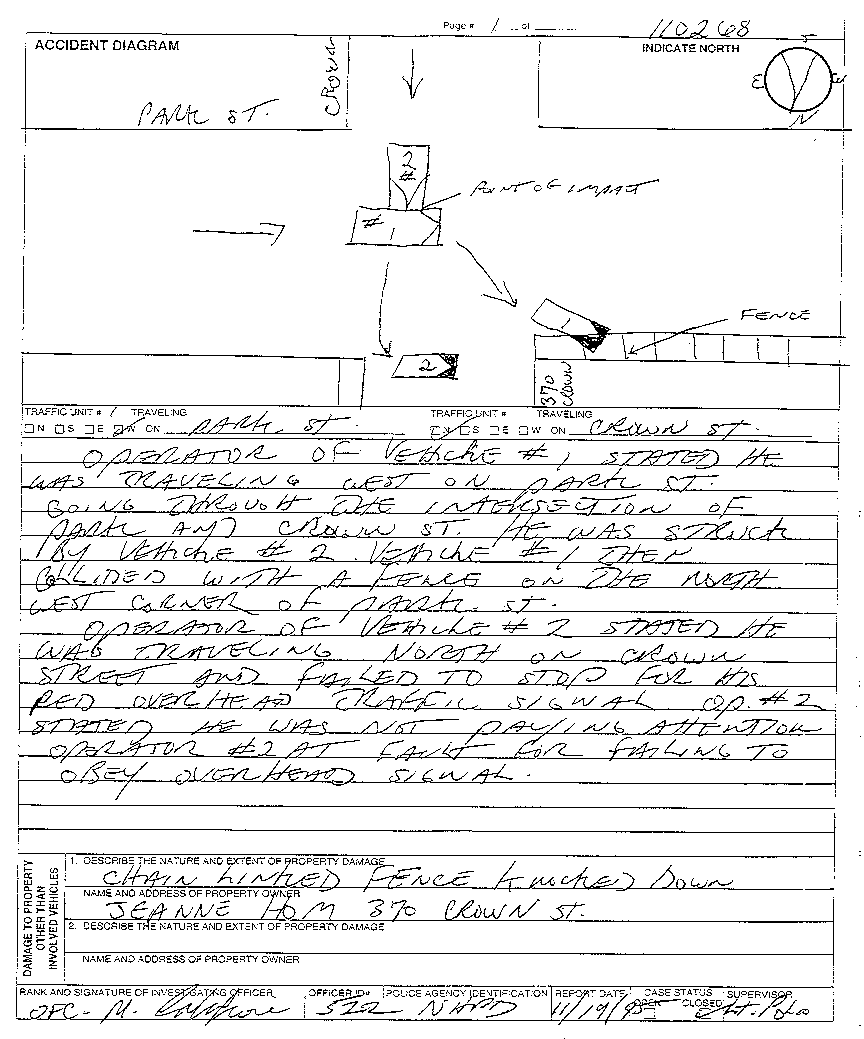 Page # 1 of
110268
ACCIDENT DIAGRAM
INDICATE NORTH
CROWN
S
E
W
N
PARK ST.
2
#
POINT OF IMPACT
# 1
1
FENCE
2
370
CROWN
TRAFFIC UNIT # 1 TRAVELING
N S E W ON PARK ST.
TRAFFIC UNIT # TRAVELING
N S E W ON CROWN ST.
OPERATOR OF VEHICLE #1 STATED HE
WAS TRAVELING WEST ON PARK ST.
GOING THROUGH THE INTERSECTION OF
PARK AND CROWN ST. HE WAS STRUCK
BY VEHICLE # 2. VEHICLE #1 THEN
COLLIDED WITH A FENCE ON THE NORTH
WEST CORNER OF PARK ST.
OPERATOR OF VEHICLE # 2 STATED HE
WAS TRAVELING NORTH ON CROWN
STREET AND FAILED TO STOP FOR HIS
RED OVERHEAD TRAFFIC SIGNAL OP. #2
STATED HE WAS NOT PAYING ATTENTION
OPERATOR #2 AT FAULT FOR FAILING TO
OBEY OVERHEAD SIGNAL.
DAMAGE TO PROPERTY
OTHER THAN
INVOLVED VEHICLES
1. DESCRIBE THE NATURE AND EXTENT OF PROPERTY DAMAGE
CHAIN LINKED FENCE KNOCKED DOWN
NAME AND ADDRESS OF PROPERTY OWNER
JEANNE HOM 370 CROWN ST.
2. DESCRIBE THE NATURE AND EXTENT OF PROPERTY DAMAGE
NAME AND ADDRESS OF PROPERTY OWNER
RANK AND SIGNATURE OF INVESTIGATING OFFICER
OFC. M.
OFFICER ID#
522
POLICE AGENCY IDENTIFICATION
NHPD
REPORT DATE
11/19/95
CASE STATUS
OPEN CLOSED
SUPERVISOR